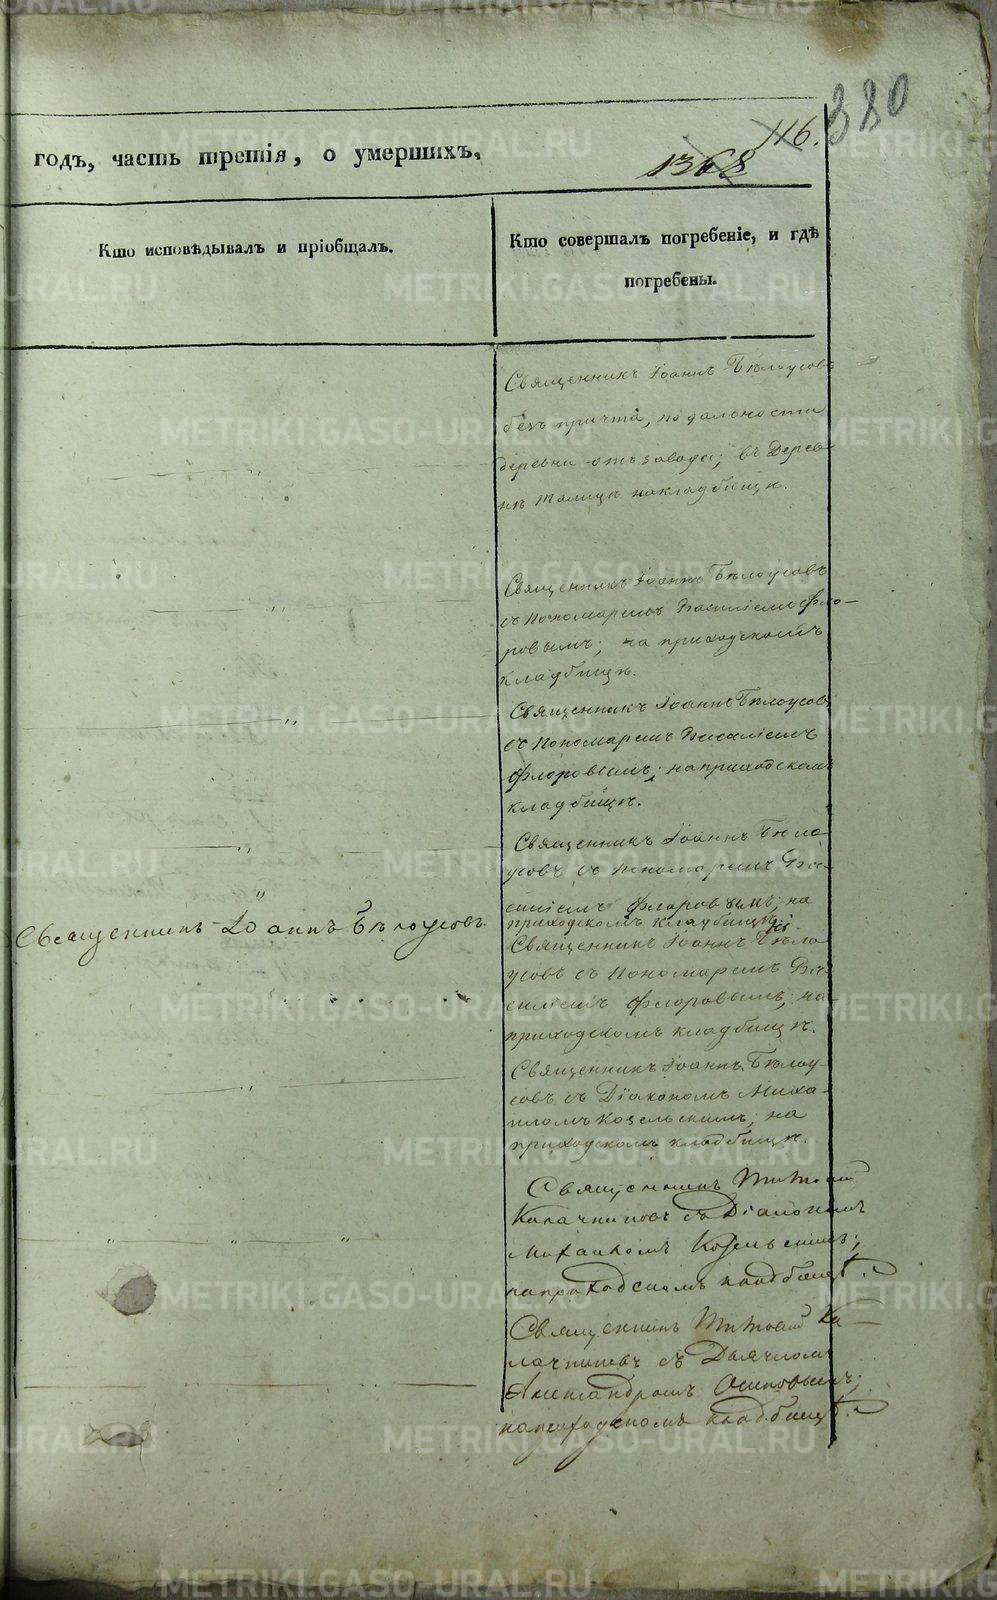 380
116.
1368
годъ, часть третія, о умершихъ.
Кто исповѣдывалъ и пріобщалъ.
Кто совершалъ погребеніе, и гдѣ
погребены.
Священникъ Іоаннъ Бѣлоусовъ
безъ причта, по дальности
деревни отъ завода; въ Дерев-
нѣ Талицѣ на кладбищѣ.
Священникъ Іоаннъ Бѣлоусовъ
съ Пономаремъ Василіемъ Фло-
ровымъ; на приходскомъ
кладбищѣ.
Священникъ Іоаннъ Бѣлоусовъ
съ Пономаремъ Василіемъ
Флоровымъ; на приходскомъ
кладбищѣ.
Священникъ Іоаннъ Бѣло-
усовъ съ Пономаремъ Ва-
силіемъ Флоровымъ; на
приходскомъ кладбищѣ
Священникъ Іоаннъ Бѣлоусовъ.
Священникъ Іоаннъ Бѣло-
усовъ съ Пономаремъ Ва-
силіемъ Флоровымъ; на
приходскомъ кладбищѣ.
Священникъ Іоаннъ Бѣлоу-
совъ съ Діакономъ Миха-
иломъ Козельскимъ; на
приходскомъ кладбищѣ.
Священникъ Тимофей
Калачниковъ съ Діакономъ
Михаиломъ Козельскимъ;
на приходскомъ кладбищѣ.
Священникъ Тимофей Ка-
лачниковъ съ Дьячкомъ
Александромъ Осиповымъ;
на приходскомъ кладбищѣ.
METRIKI.GASO-URAL.RU